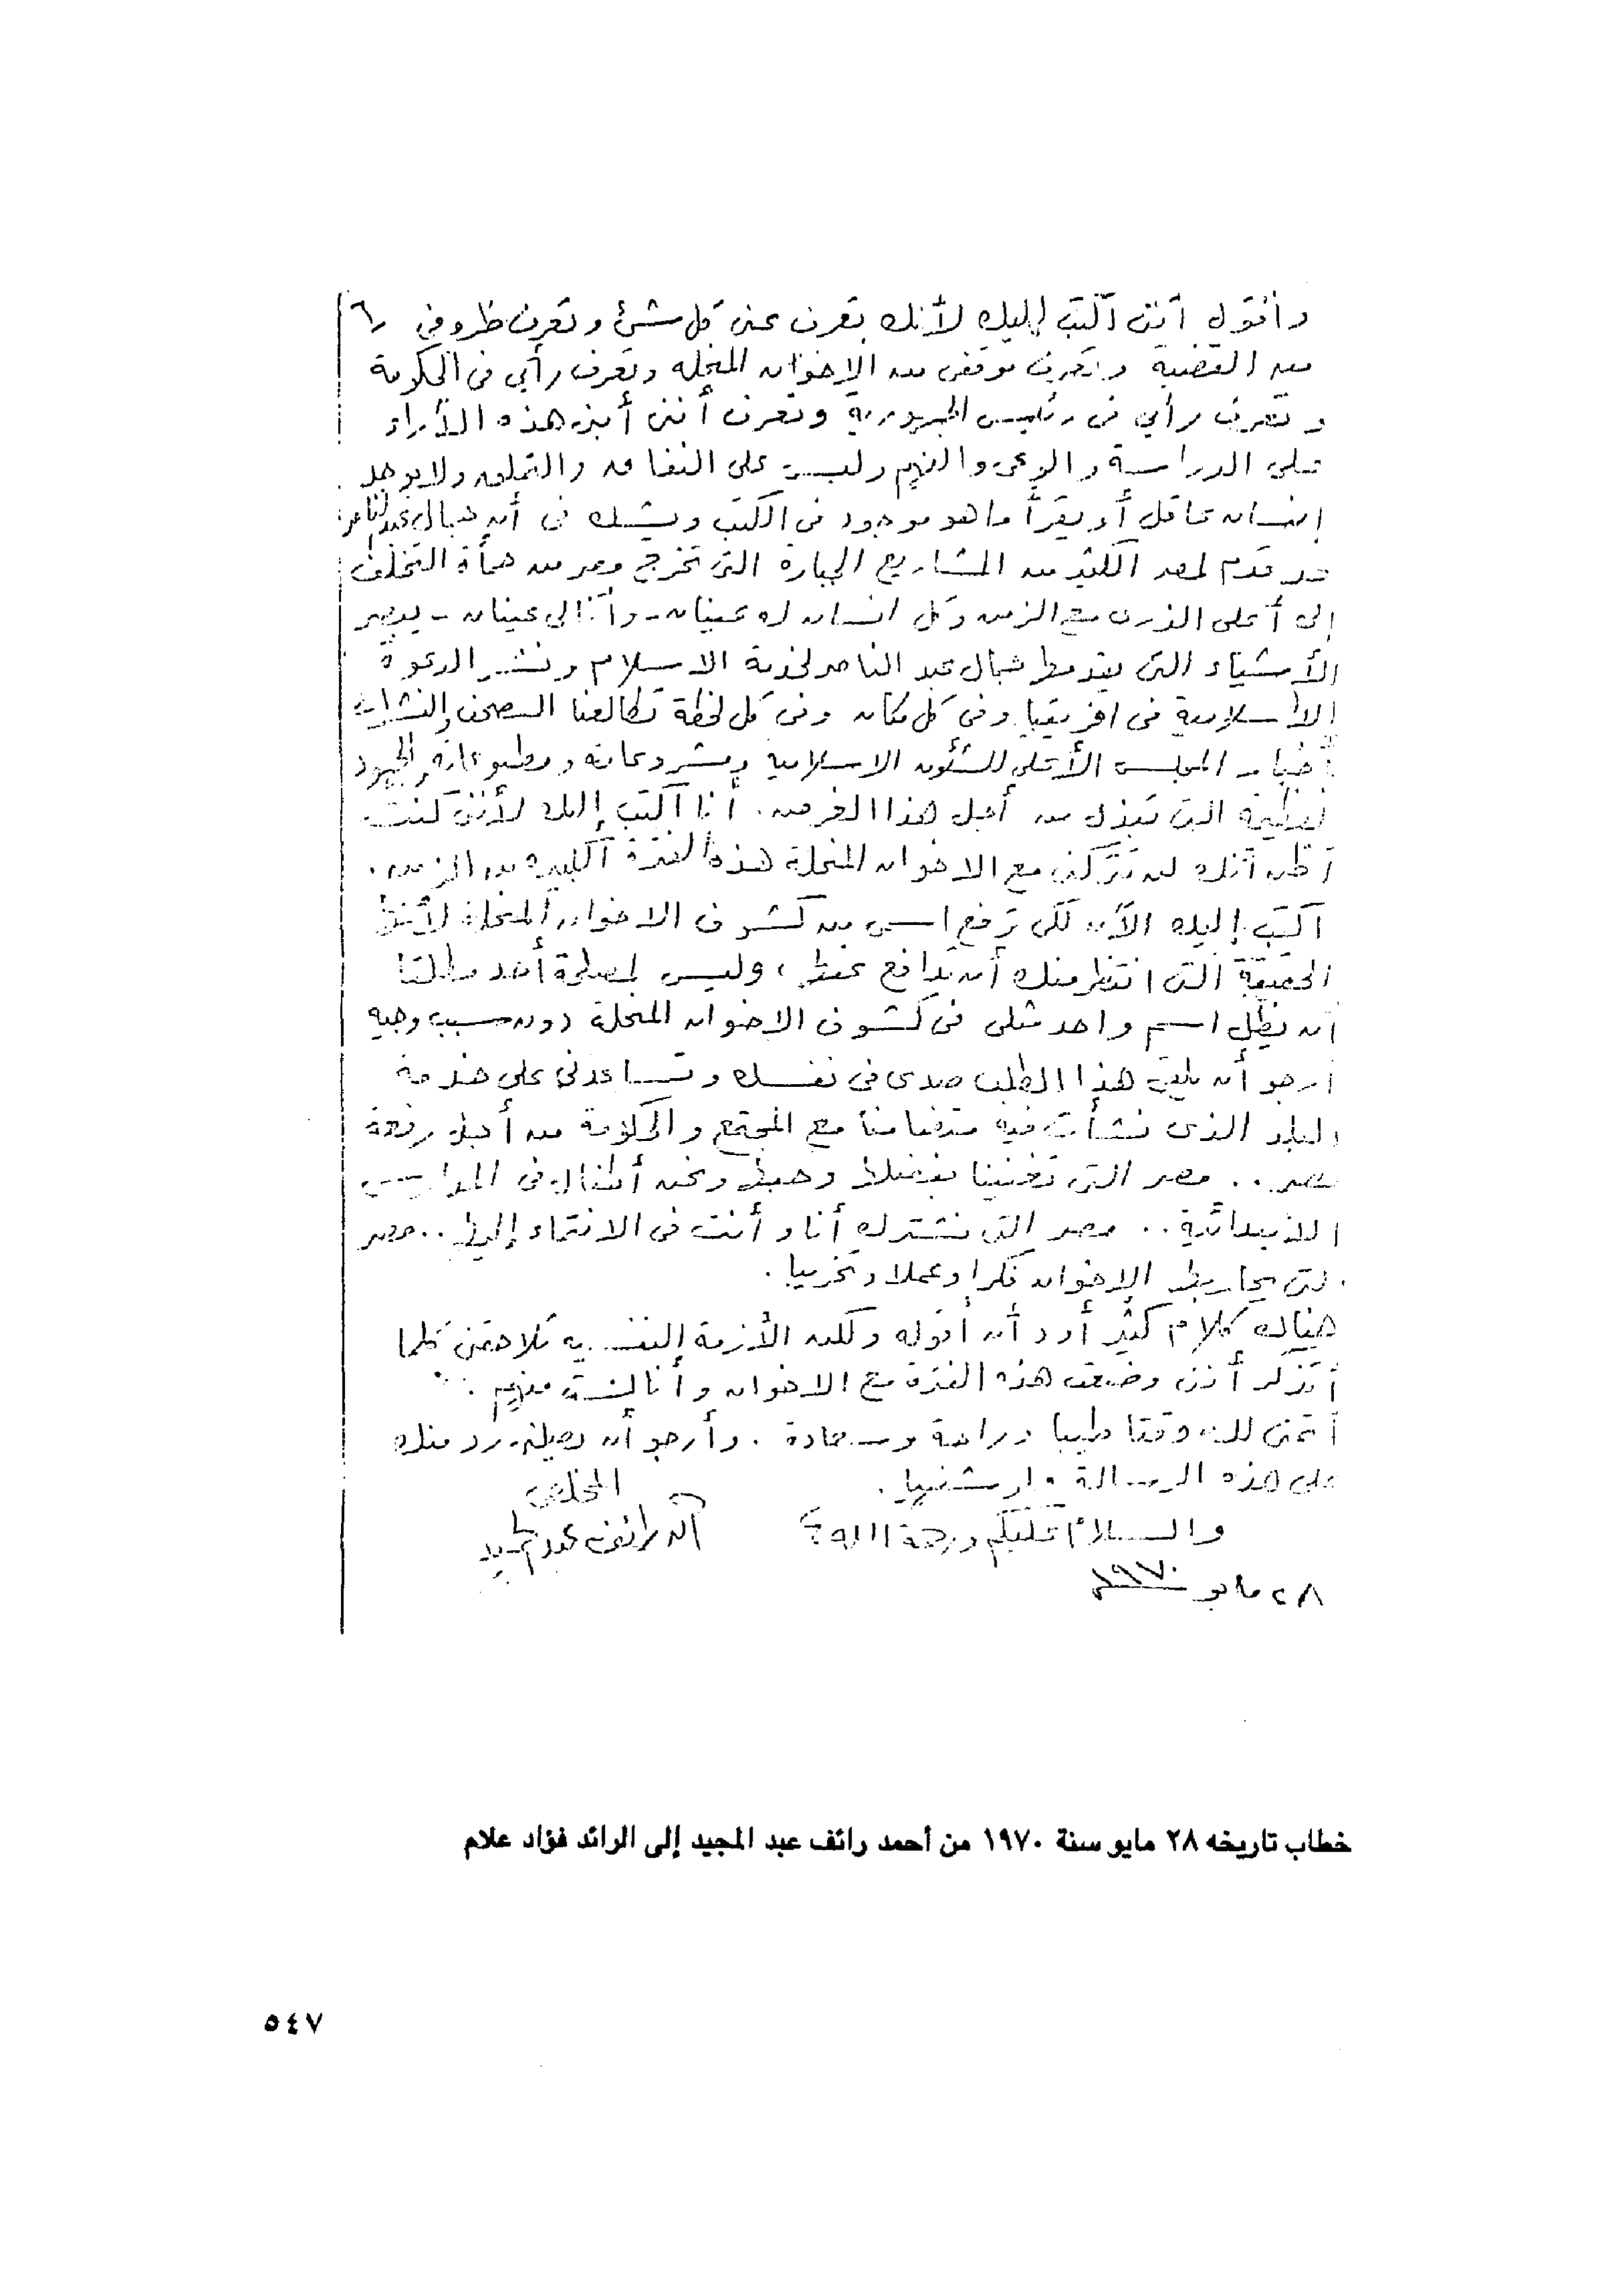 وأقول أنني أكتب إليك لأنك تعرف عني كل شئ وتعرف ظروفي
من القضية وتعرف موقفي من الإخوان المنحلة وتعرف رأيي في الحكومة
وتعرف رأيي في رئيس الجمهورية وتعرف أنني أبني هذه الأراء
على الدراسة والوعى والفهم وليس على النفاق والتملق ولا يوجد
إنسان عاقل أو يقرأ ما هو موجود في الكتب ويشك في أن جمال عبد الناصر
قد قدم لمصر الكثير من المشاريع الجبارة التى تخرج مصر من حمأة التخلف
إلى أعلى الذرى مع الزمن وكل انسان له عينان - وأنا لى عينان - يبصر
الأشياء التى يقدمها جمال عبد الناصر لخدمة الاسلام ونشر الدعوة
الاسلامية فى افريقيا وفى كل مكان وفى كل لحظة تطالعنا الصحف والنشرات
أخبار المجلس الأعلى للشئون الاسلامية ومشروعاته ومطبوعاته والجهود
التى تبذل من أجل هذا الغرض. أنا أكتب إليك لأننى كنت
أظن أنك لن تتركنى مع الاخوان المنحلة هذه الفترة الكبيرة من الزمن.
أكتب إليك الآن لكى ترفع اسمى من كشوف الاخوان المنحلة لأنها
الحقيقة التى انتظر منك أن تدافع عنها، وليس لمصلحة أحد مطلقا
أن يظل اسم واحد مثلى فى كشوف الاخوان المنحلة دون سبب وجيه
أرجو أن يلقى هذا الطلب صدى فى نفسك وتساعدنى على خدمة
البلد الذى نشأت فيه متضامنا مع المجتمع والحكومة من أجل رفعة
مصر .. مصر التى تغنينا بفضلها وحبها ونحن أطفال فى المدارس
الابتدائية .. مصر التى نشترك أنا وأنت فى الانتماء إليها .. مصر
التى يحاربها الاخوان فكرا وعملا وتخريبا.
هناك كلام كثير أود أن أقوله ولكن الأزمة النفسية تلاحقنى كلما
أتذكر أننى وضعت هذه الفترة مع الاخوان وأنا لست منهم.
أتمنى لك وقتا طيبا وراحة وسعادة. وأرجو أن يصلنى رد منك
على هذه الرسالة
المخلص
والسلام عليكم ورحمة الله
أحمد رائف عبد المجيد
٢٨ مايو ١٩٧٠
خطاب تاريخه ٢٨ مايو سنة ١٩٧٠ من أحمد رائف عبد المجيد إلى الرائد فؤاد علام
٥٤٧